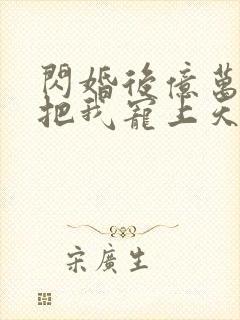 閃婚後億萬
把我寵上天
宋廣生